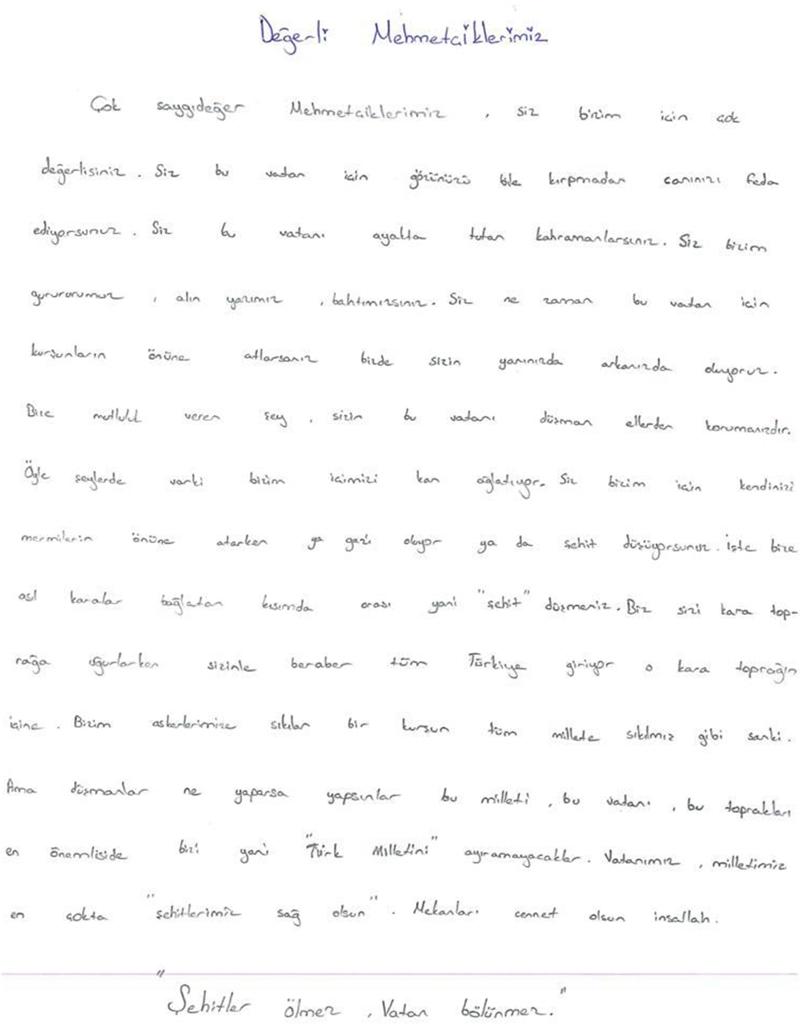 Değerli Mehmetçiklerimiz
Çok saygıdeğer Mehmetçiklerimiz , siz bizim için çok
değerlisiniz . Siz bu vatan için gözünüzü bile kırpmadan canınızı feda
ediyorsunuz . Siz bu vatanı ayakta tutan kahramanlarsınız . Siz bizim
gururumuz , alın yazımız , bahtımızsınız . Siz ne zaman bu vatan için
kurşunların önüne atlarsanız bizde sizin yanınızda arkanızda oluyoruz .
Bize mutluluk veren şey , sizin bu vatanı düşman ellerden korumanızdır.
Öyle şeylerde varki bizim içimizi kan ağlatıyor. Siz bizim için kendinizi
mermilerin önüne atarken ya gazi oluyor ya da şehit düşüyorsunuz . İşte bize
asıl karalar bağlatan kısımda orası yani "şehit" düşmeniz . Biz sizi kara top-
rağa uğurlarken sizinle beraber tüm Türkiye giriyor o kara toprağın
içine . Bizim askerlerimize sıkılan bir kurşun tüm millete sıkılmız gibi sanki .
Ama düşmanlar ne yaparsa yapsınlar bu milleti , bu vatanı , bu toprakları
en önemliside bizi yani "Türk Milletini" ayıramayacaklar . Vatanımız , milletimiz
en çokta "şehitlerimiz sağ olsun" . Mekanları cennet olsun inşallah .
"Şehitler ölmez , Vatan bölünmez ."